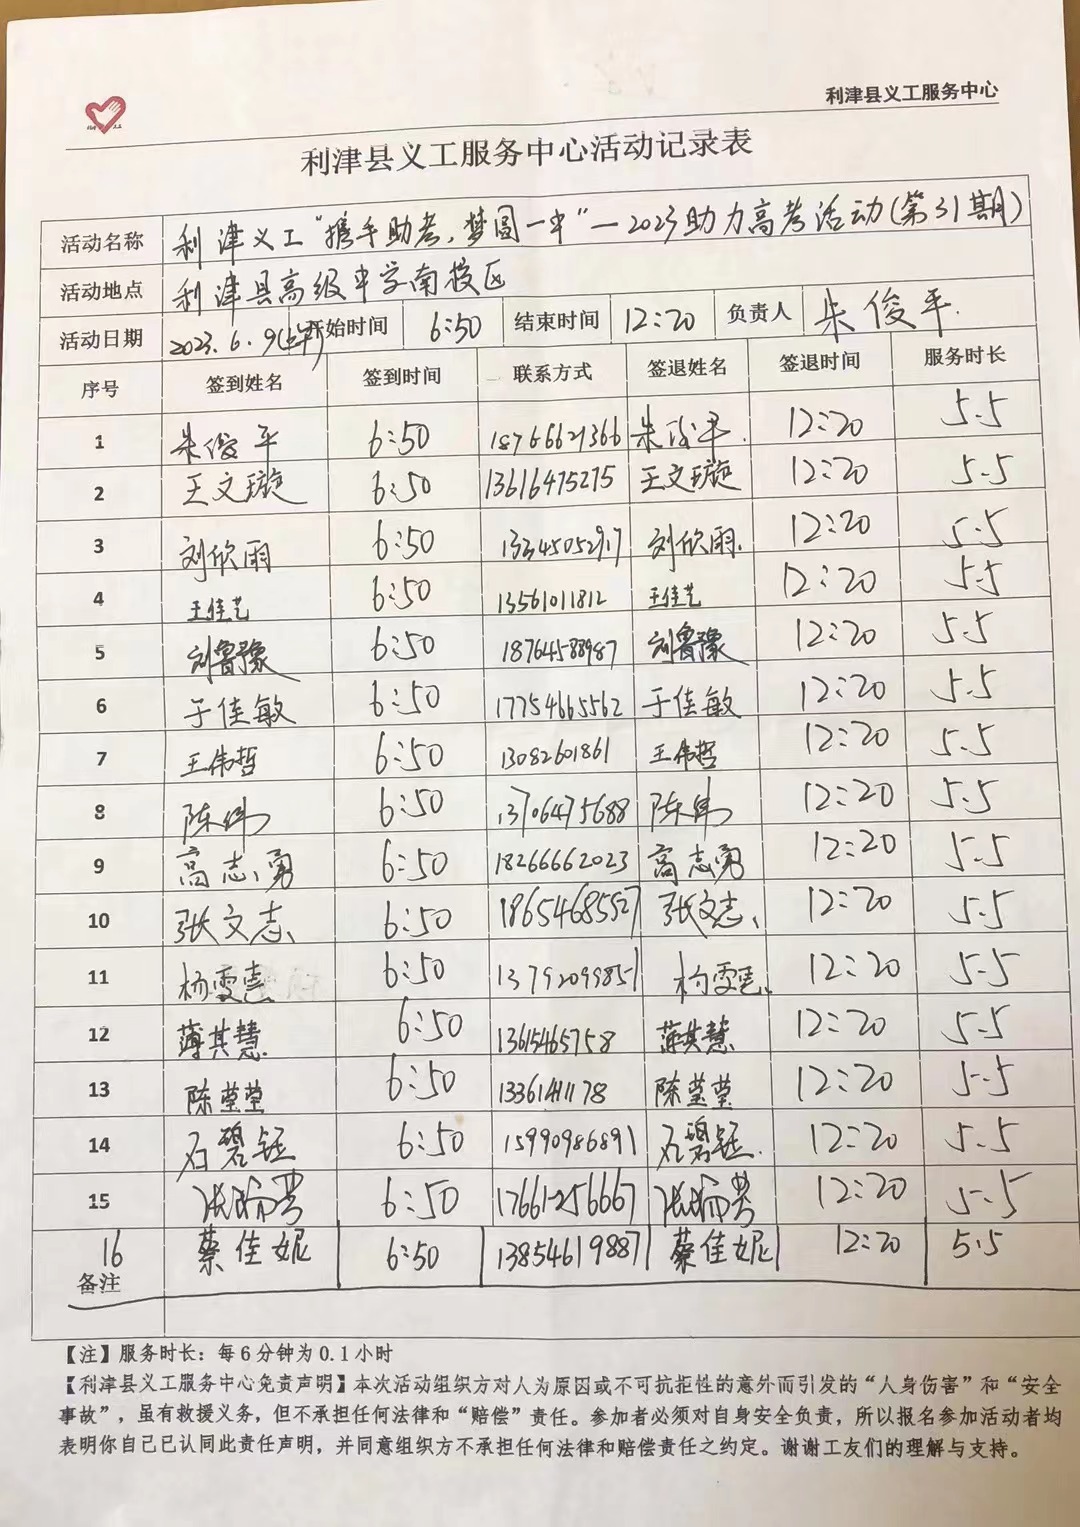 利津县义工服务中心
利津县义工服务中心活动记录表
活动名称 利津义工“携手助考,梦圆一中”—2023助力高考活动(第31期)
活动地点 利津县高级中学南校区
活动日期 2023.6.9(上午) 开始时间 6:50 结束时间 12:20 负责人 朱俊平
序号 签到姓名 签到时间 联系方式 签退姓名 签退时间 服务时长
1 朱俊平 6:50 18766621366 朱俊平 12:20 5.5
2 王文璇 6:50 13616475275 王文璇 12:20 5.5
3 刘欣雨 6:50 13345052917 刘欣雨 12:20 5.5
4 王佳艺 6:50 13561011812 王佳艺 12:20 5.5
5 刘鲁豫 6:50 18764588987 刘鲁豫 12:20 5.5
6 于佳敏 6:50 17754665562 于佳敏 12:20 5.5
7 王伟哲 6:50 13082601861 王伟哲 12:20 5.5
8 陈伟 6:50 13706475688 陈伟 12:20 5.5
9 高志勇 6:50 18266662023 高志勇 12:20 5.5
10 张文志 6:50 18654685527 张文志 12:20 5.5
11 杨雯 6:50 13792099851 杨雯 12:20 5.5
12 薄其慧 6:50 13615465758 薄其慧 12:20 5.5
13 陈莹莹 6:50 13361411178 陈莹莹 12:20 5.5
14 石碧钰 6:50 15990986891 石碧钰 12:20 5.5
15 6:50 17661256667 12:20 5.5
16 蔡佳妮 6:50 13854619887 蔡佳妮 12:20 5.5
备注
【注】服务时长：每6分钟为0.1小时
【利津县义工服务中心免责声明】本次活动组织方对人为原因或不可抗拒性的意外而引发的“人身伤害”和“安全
事故”，虽有救援义务，但不承担任何法律和“赔偿”责任。参加者必须对自身安全负责，所以报名参加活动者均
表明你自己已认同此责任声明，并同意组织方不承担任何法律和赔偿责任之约定。谢谢工友们的理解与支持。